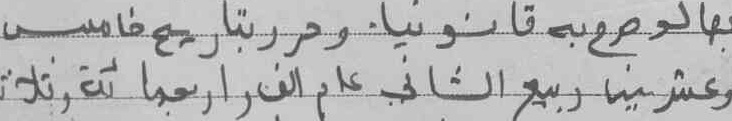 بها لوجوبه قانونيا. وحرر بتاريخ خامس
وعشرين ربيع الثاني عام الف واربعمائة وثلاثة